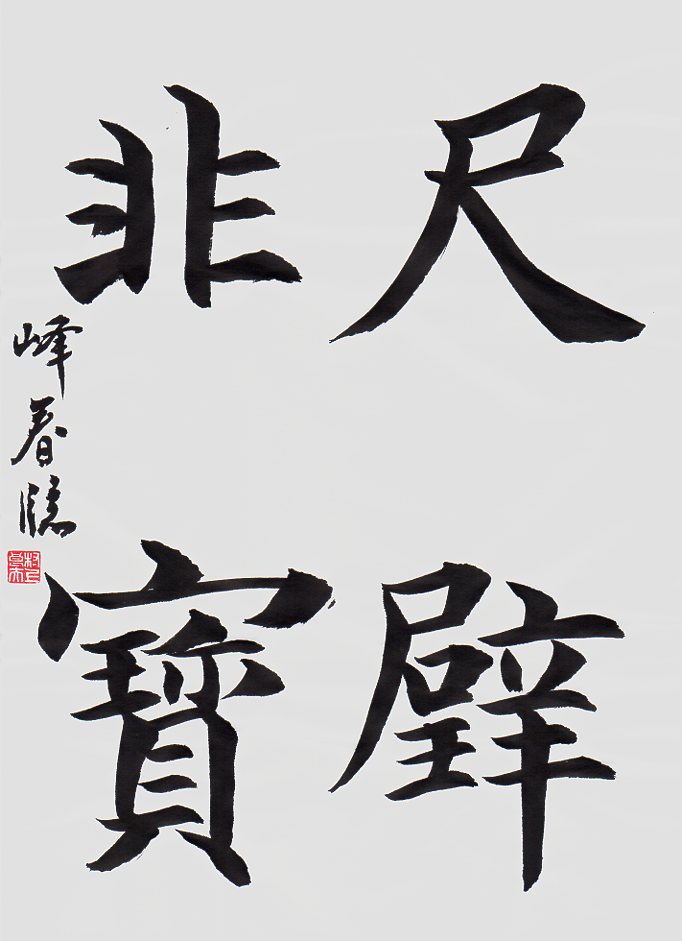 尺璧
非寳
峰春臨